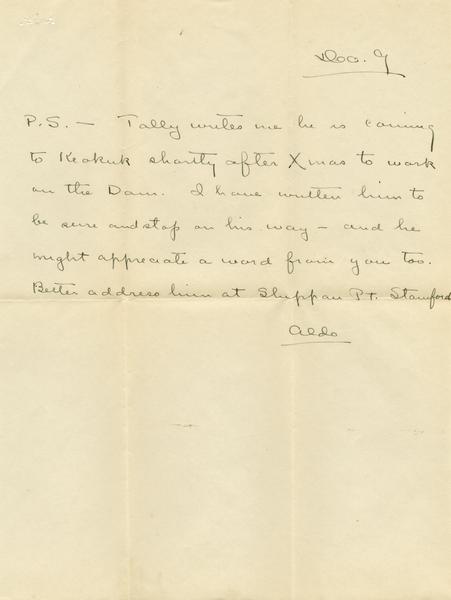 Dec. 9
P.S. — Tally writes me he is coming
to Keokuk shortly after Xmas to work
on the Dam. I have written him to
be sure and stop on his way — and he
might appreciate a word from you too.
Better address him at Shippan Pt. Stamford
Aldo